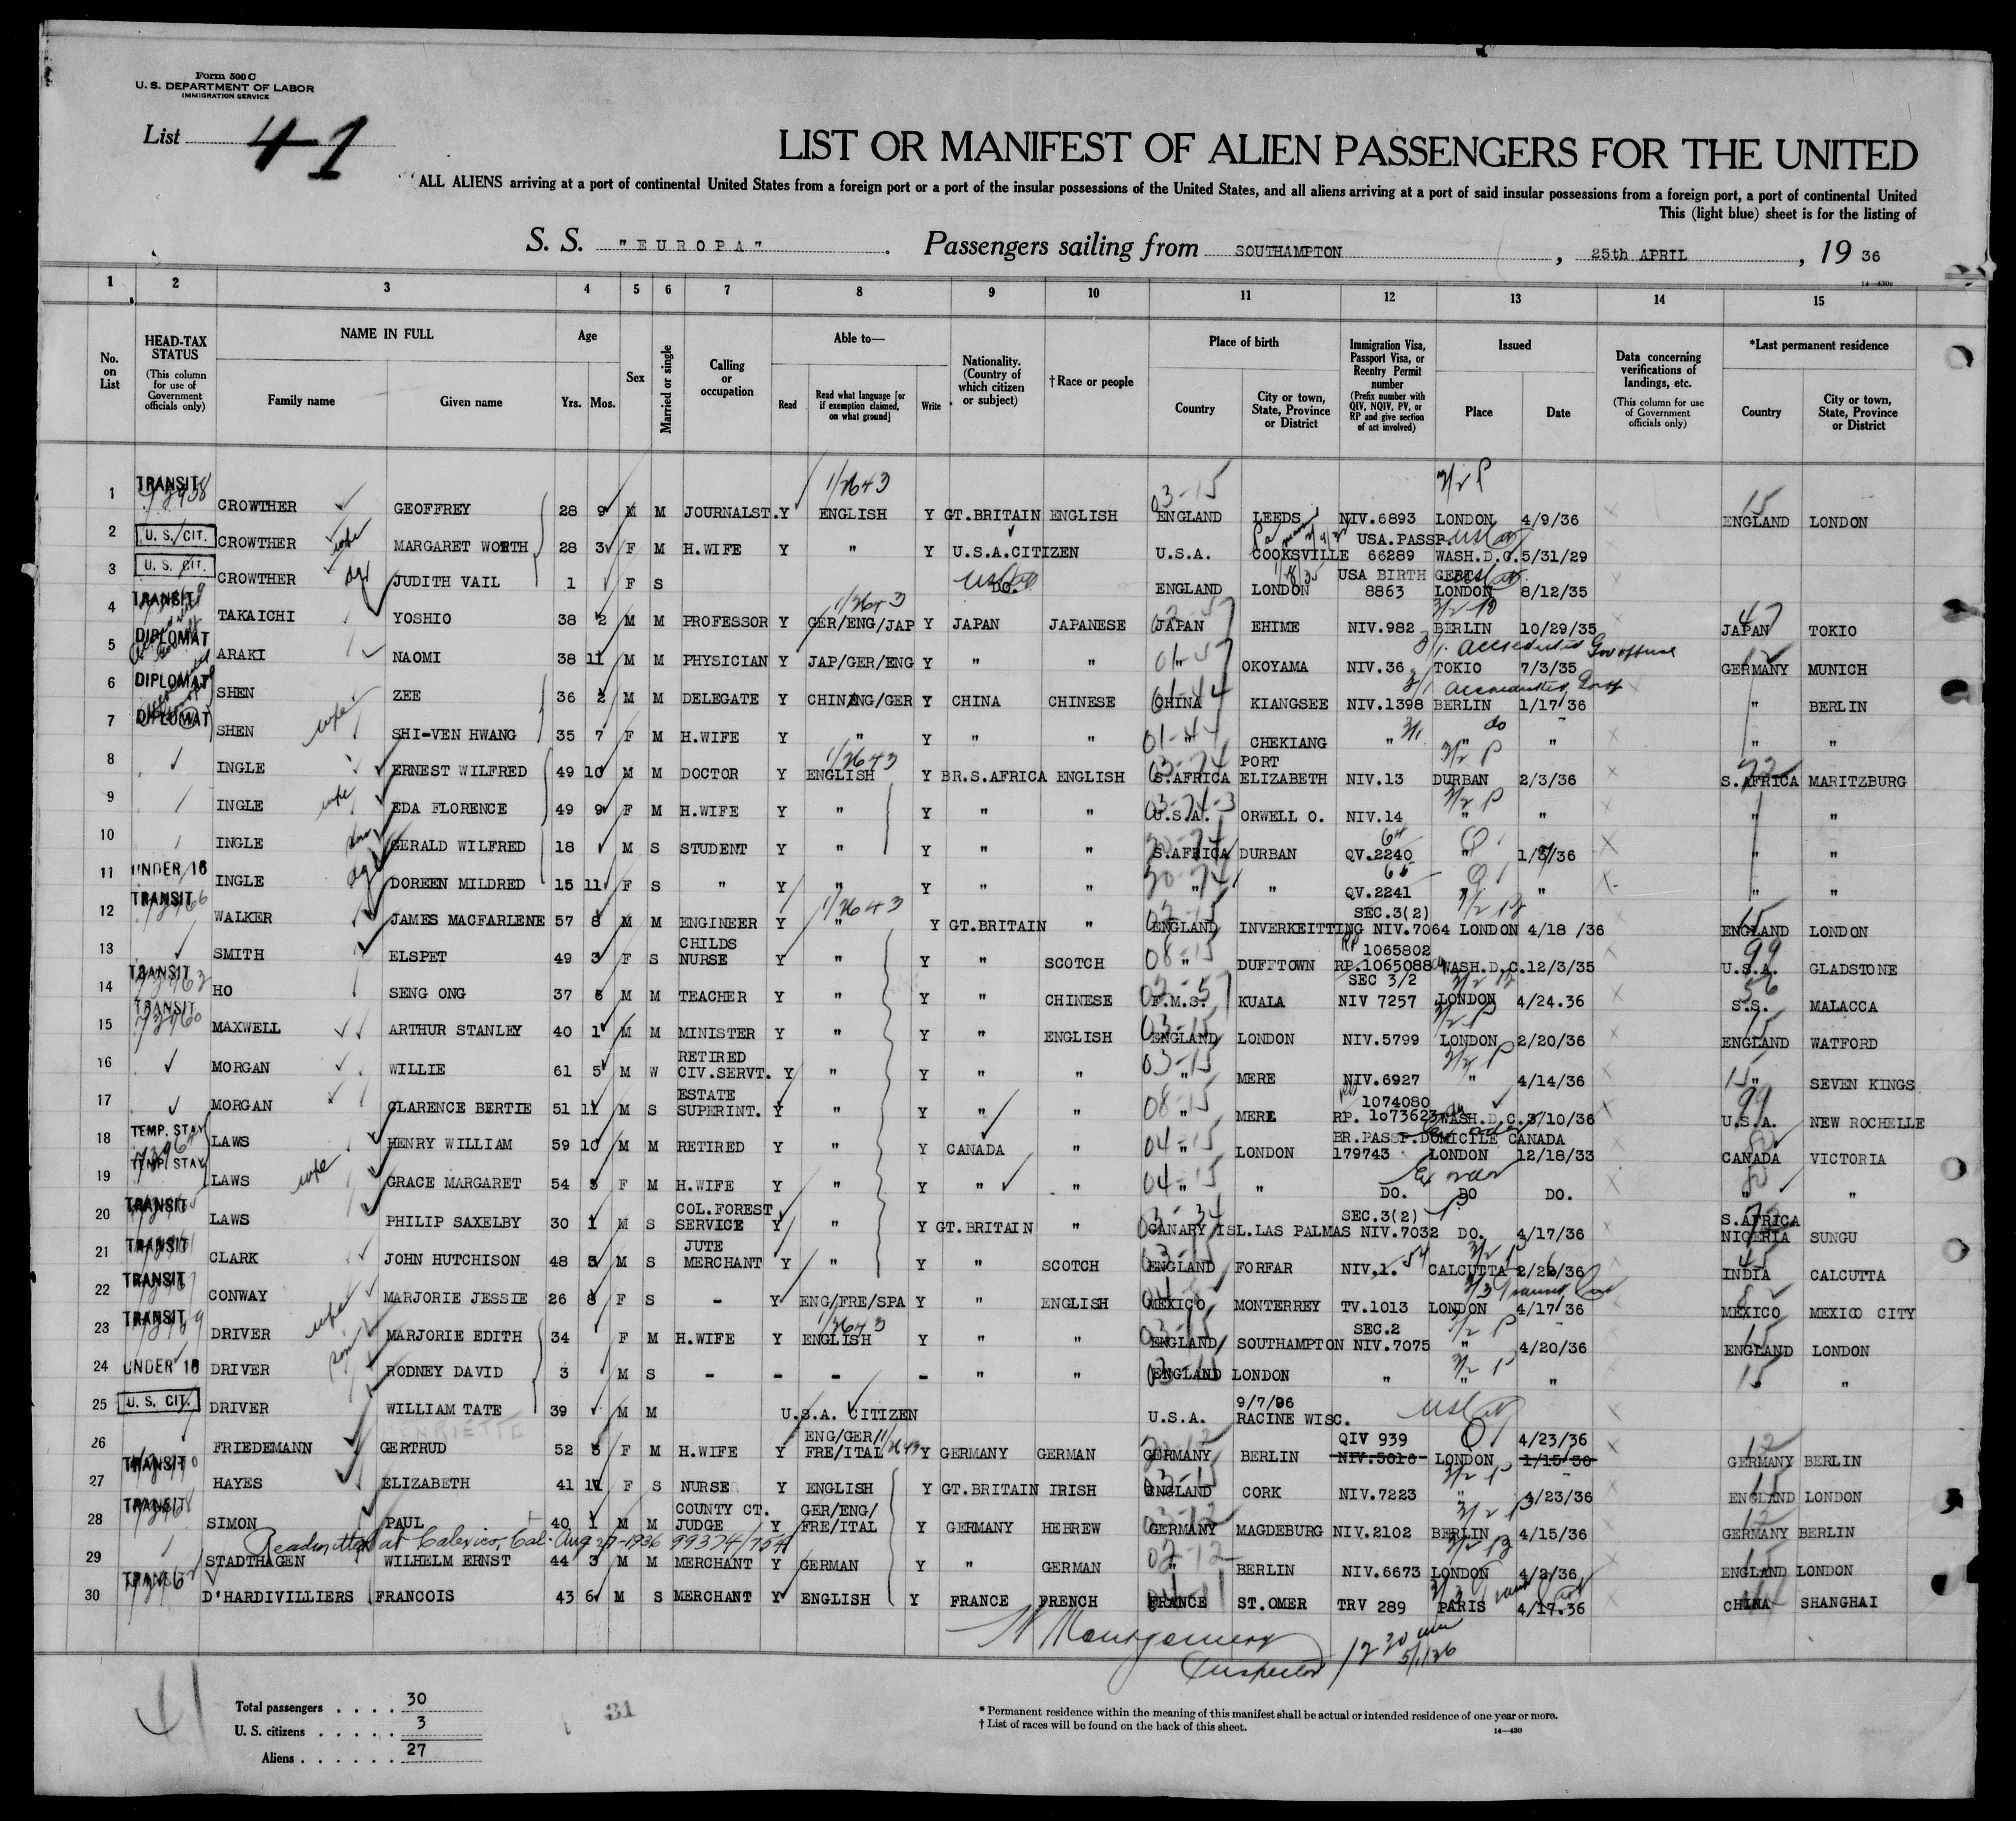 Form 500 C
U. S. DEPARTMENT OF LABOR
IMMIGRATION SERVICE
List 41
LIST OR MANIFEST OF ALIEN PASSENGERS FOR THE UNITED
ALL ALIENS arriving at a port of continental United States from a foreign port or a port of the insular possessions of the United States, and all aliens arriving at a port of said insular possessions from a foreign port, a port of continental United
This (light blue) sheet is for the listing of
S. S. "EUROPA". Passengers sailing from SOUTHAMPTON, 25th APRIL, 19 36
14-430c
1 2 3 4 5 6 7 8 9 10 11 12 13 14 15
No. on List
HEAD-TAX STATUS (This column for use of Government officials only)
NAME IN FULL Family name Given name
Age Yrs. Mos.
Sex
Married or single
Calling or occupation
Able to— Read Read what language [or if exemption claimed, on what ground] Write
Nationality. (Country of which citizen or subject)
†Race or people
Place of birth Country City or town, State, Province or District
Immigration Visa, Passport Visa, or Reentry Permit number (Prefix number with QIV, NQIV, PV, or RP and give section of act involved)
Issued Place Date
Data concerning verifications of landings, etc. (This column for use of Government officials only)
*Last permanent residence Country City or town, State, Province or District
1 TRANSIT CROWTHER GEOFFREY 28 9 M M JOURNALST. Y ENGLISH Y GT.BRITAIN ENGLISH ENGLAND LEEDS NIV.6893 LONDON 4/9/36 ENGLAND LONDON
2 U. S. CIT. CROWTHER wife MARGARET WORTH 28 3 F M H.WIFE Y " Y U.S.A.CITIZEN U.S.A. COOKSVILLE USA.PASSP. 66289 WASH.D.C. 5/31/29
3 U. S. CIT. CROWTHER JUDITH VAIL 1 F S DO. ENGLAND LONDON USA BIRTH CERT. 8863 LONDON 8/12/35
4 TRANSIT TAKAICHI YOSHIO 38 2 M M PROFESSOR Y GER/ENG/JAP Y JAPAN JAPANESE JAPAN EHIME NIV.982 BERLIN 10/29/35 JAPAN TOKIO
5 DIPLOMAT ARAKI NAOMI 38 11 M M PHYSICIAN Y JAP/GER/ENG Y " " " OKOYAMA NIV.36 TOKIO 7/3/35 GERMANY MUNICH
6 DIPLOMAT SHEN ZEE 36 2 M M DELEGATE Y CHIN/ENG/GER Y CHINA CHINESE CHINA KIANGSEE NIV.1398 BERLIN 1/17 36 " BERLIN
7 DIPLOMAT SHEN wife SHI-VEN HWANG 35 7 F M H.WIFE Y " Y " " " CHEKIANG " " " " "
8 INGLE ERNEST WILFRED 49 10 M M DOCTOR Y ENGLISH Y BR.S.AFRICA ENGLISH S.AFRICA PORT ELIZABETH NIV.13 DURBAN 2/3/36 S.AFRICA MARITZBURG
9 INGLE wife EDA FLORENCE 49 9 F M H.WIFE Y " Y " " U.S.A. ORWELL O. NIV.14 " " " "
10 INGLE GERALD WILFRED 18 M S STUDENT Y " Y " " S.AFRICA DURBAN QV.2240 " 1/3/36 " "
11 UNDER 16 INGLE DOREEN MILDRED 15 11 F S " Y " Y " " " " QV.2241 " " " "
12 TRANSIT WALKER JAMES MACFARLENE 57 8 M M ENGINEER Y " Y GT.BRITAIN " ENGLAND INVERKEITTING SEC.3(2) NIV.7064 LONDON 4/18 /36 ENGLAND LONDON
13 SMITH ELSPET 49 3 F S CHILDS NURSE Y " Y " SCOTCH " DUFFTOWN RP 1065802 RP.1065088 WASH.D.C. 12/3/35 U.S.A. GLADSTONE
14 TRANSIT HO SENG ONG 37 6 M M TEACHER Y " Y " CHINESE F.M.S. KUALA SEC 3/2 NIV 7257 LONDON 4/24.36 S.S. MALACCA
15 TRANSIT MAXWELL ARTHUR STANLEY 40 1 M M MINISTER Y " Y " ENGLISH ENGLAND LONDON NIV.5799 LONDON 2/20/36 ENGLAND WATFORD
16 MORGAN WILLIE 61 5 M W RETIRED CIV.SERVT. Y " Y " " " MERE NIV.6927 " 4/14/36 " SEVEN KINGS
17 MORGAN CLARENCE BERTIE 51 11 M S ESTATE SUPERINT. Y " Y " " " MERE 1074080 RP. 1073623 WASH.D.C. 3/10/36 U.S.A. NEW ROCHELLE
18 TEMP. STAY LAWS HENRY WILLIAM 59 10 M M RETIRED Y " Y CANADA " " LONDON BR.PASSP.DOMICILE CANADA 179743 LONDON 12/18/33 CANADA VICTORIA
19 TEMP. STAY LAWS wife GRACE MARGARET 54 3 F M H.WIFE Y " Y " " " " DO. DO DO. " "
20 TRANSIT LAWS PHILIP SAXELBY 30 1 M S COL.FOREST SERVICE Y " Y GT.BRITAIN " CANARY ISL. LAS PALMAS SEC.3(2) NIV.7032 DO. 4/17/36 S.AFRICA NIGERIA SUNGU
21 TRANSIT CLARK JOHN HUTCHISON 48 5 M S JUTE MERCHANT Y " Y " SCOTCH ENGLAND FORFAR NIV.1. 54 CALCUTTA 2/26/36 INDIA CALCUTTA
22 TRANSIT CONWAY MARJORIE JESSIE 26 8 F S - Y ENG/FRE/SPA Y " ENGLISH MEXICO MONTERREY TV.1013 LONDON 4/17 36 MEXICO MEXICO CITY
23 TRANSIT DRIVER wife MARJORIE EDITH 34 F M H.WIFE Y ENGLISH Y " " ENGLAND SOUTHAMPTON SEC.2 NIV.7075 " 4/20/36 ENGLAND LONDON
24 UNDER 16 DRIVER son RODNEY DAVID 3 M S - - - - " " ENGLAND LONDON " " " " "
25 U. S. CIT. DRIVER WILLIAM TATE 39 M M U.S.A. CITIZEN U.S.A. 9/7/96 RACINE WISC.
26 FRIEDEMANN GERTRUD 52 8 F M H.WIFE Y ENG/GER/ FRE/ITAL Y GERMANY GERMAN GERMANY BERLIN QIV 939 LONDON 4/23/36 GERMANY BERLIN
27 TRANSIT HAYES ELIZABETH 41 11 F S NURSE Y ENGLISH Y GT.BRITAIN IRISH ENGLAND CORK NIV.7223 " 4/23/36 ENGLAND LONDON
28 TRANSIT SIMON PAUL 40 1 M M COUNTY CT. JUDGE Y GER/ENG/ FRE/ITAL Y GERMANY HEBREW GERMANY MAGDEBURG NIV.2102 BERLIN 4/15/36 GERMANY BERLIN
Readmitted at Calexico, Cal. Aug 27-1936 99374/754
29 STADTHAGEN WILHELM ERNST 44 3 M M MERCHANT Y GERMAN Y " GERMAN " BERLIN NIV.6673 LONDON 4/2/36 ENGLAND LONDON
30 TRANSIT D'HARDIVILLIERS FRANCOIS 43 6 M S MERCHANT Y ENGLISH Y FRANCE FRENCH FRANCE ST.OMER TRV 289 PARIS 4/17.36 CHINA SHANGHAI
Montgomery
Inspector 12 30 5/1/36
Total passengers . . . . 30
U. S. citizens . . . . . 3
Aliens . . . . . . 27
31
* Permanent residence within the meaning of this manifest shall be actual or intended residence of one year or more.
† List of races will be found on the back of this sheet.
14-430